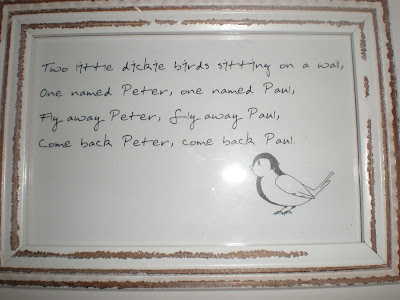 Two little dickie birds sitting on a wal,
One named Peter, one named Paul,
Fly away Peter, fly away Paul,
Come back Peter, come back Paul.